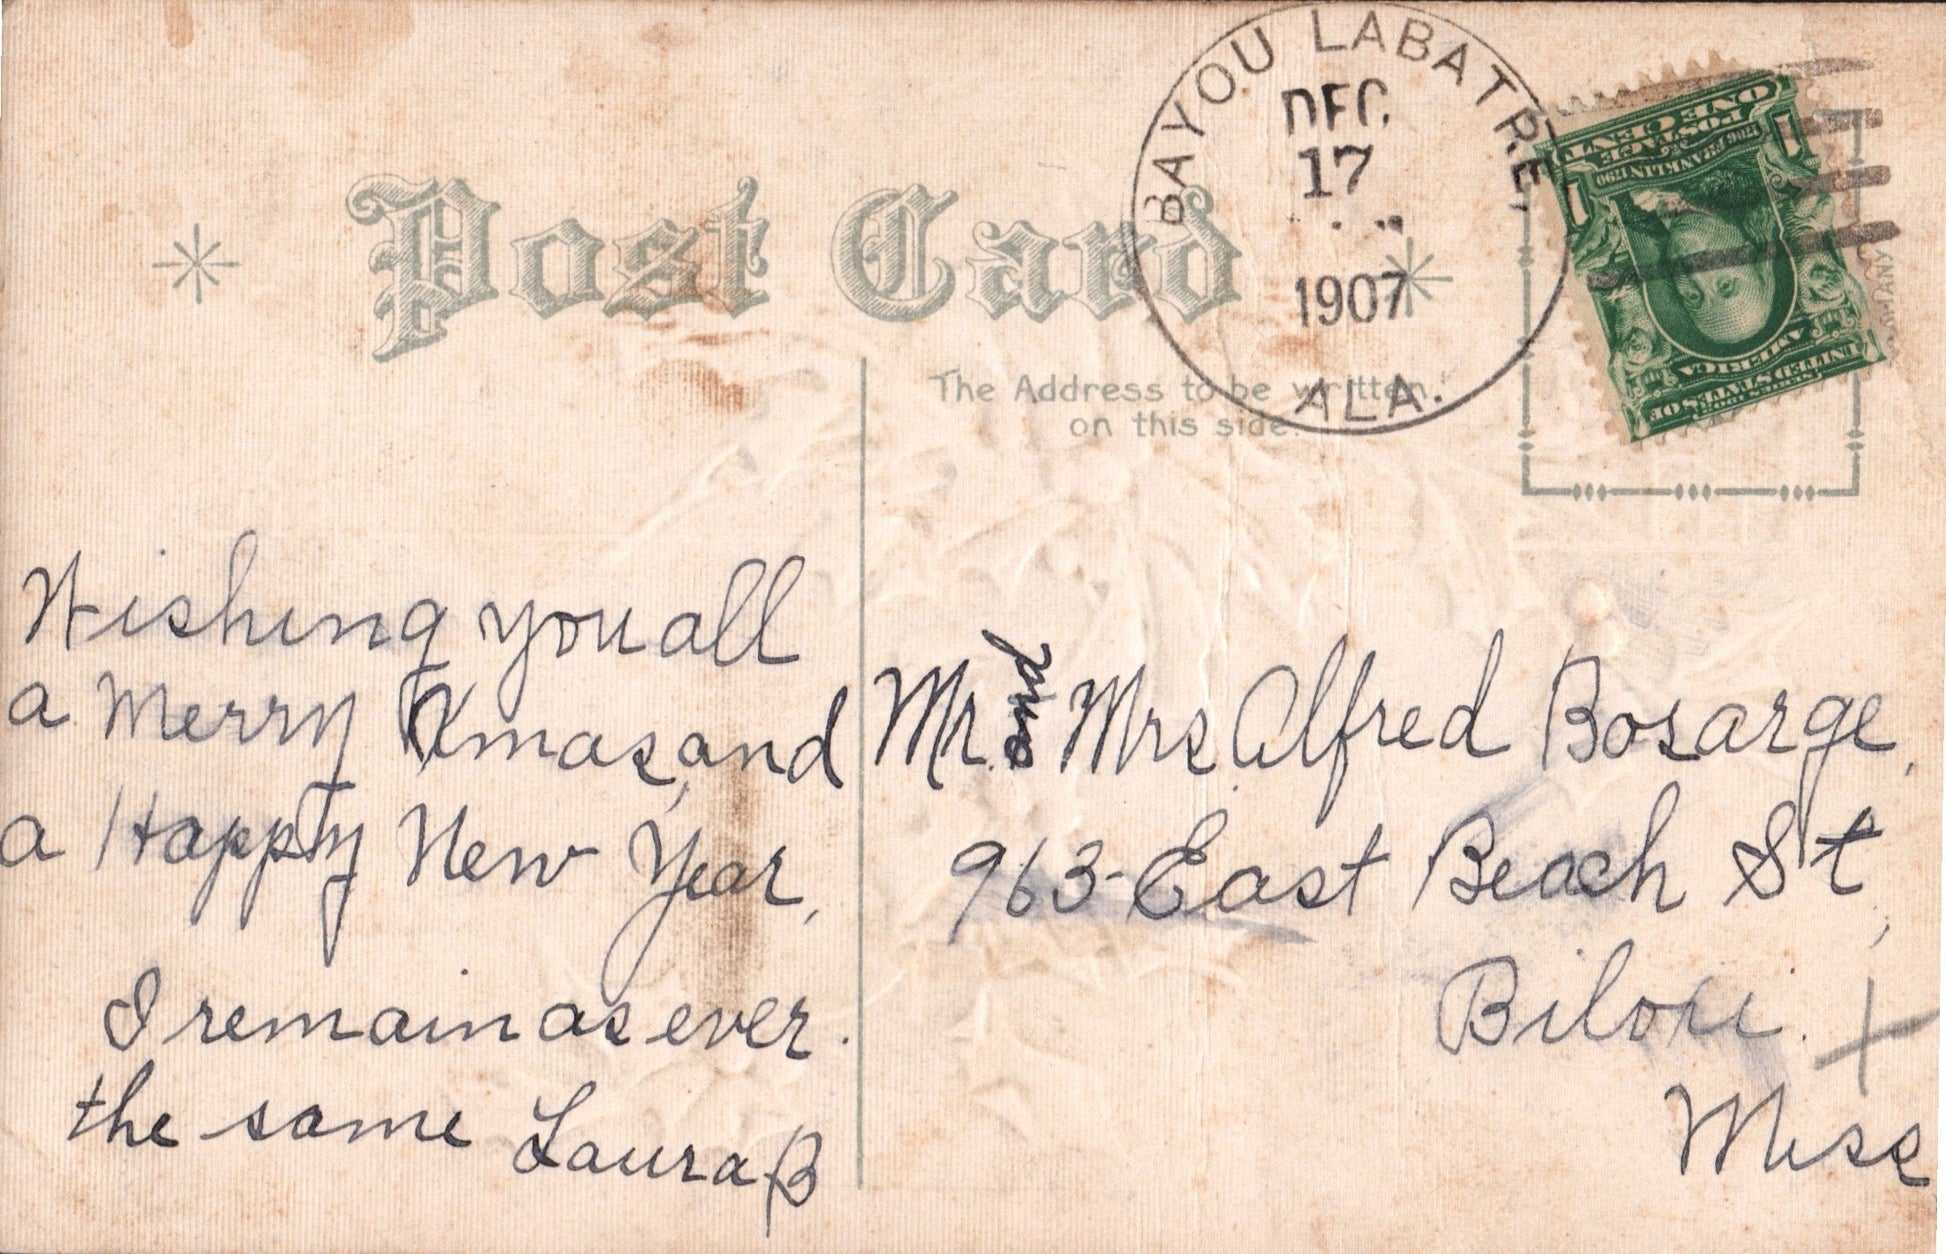 BAYOU LABATRE,
DEC.
17
1907
ALA.
Post Card
The Address to be written
on this side.
POSTAGE
ONE CENT
1706 FRANKLIN 1790
1 1
SERIES 1902
UNITED STATES OF
AMERICA
Wishing you all
a Merry Xmas, and
a Happy New Year,
I remain as ever.
the same Laura B
Mr. and Mrs Alfred Bosarge,
963-East Beach St,
Biloxi.
Miss